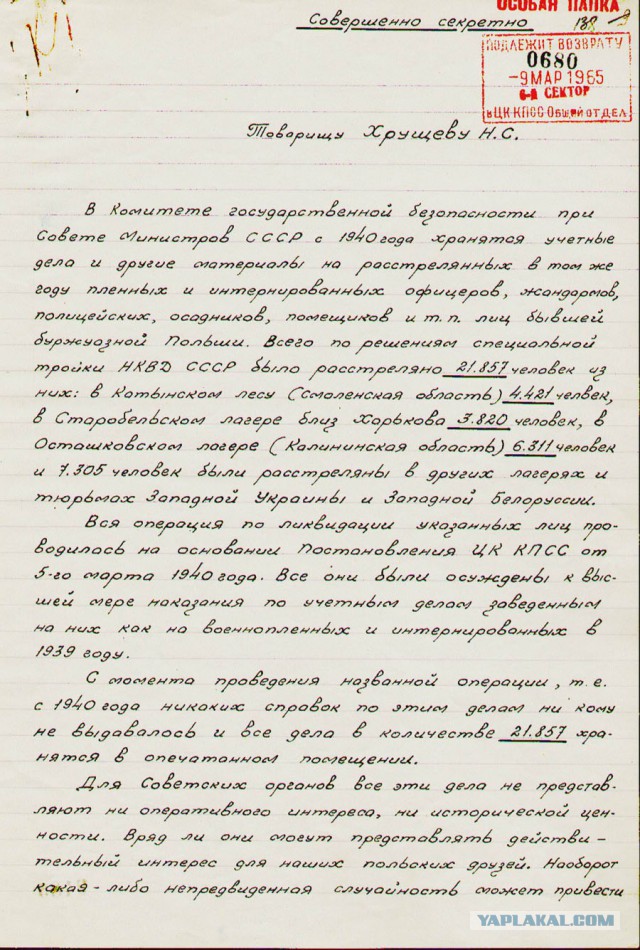 ОСОБАЯ ПАПКА
Совершенно секретно
138
ПОДЛЕЖИТ ВОЗВРАТУ
0680
-9 МАР 1965
6-й СЕКТОР
в ЦК КПСС Общий отдел
Товарищу Хрущеву Н.С.
В Комитете государственной безопасности при
Совете Министров СССР с 1940 года хранятся учетные
дела и другие материалы на расстрелянных в том же
году пленных и интернированных офицеров, жандармов,
полицейских, осадников, помещиков и т.п. лиц бывшей
буржуазной Польши. Всего по решениям специальной
тройки НКВД СССР было расстреляно 21.857 человек из
них: в Катынском лесу (Смоленская область) 4.421 челвек,
в Старобельском лагере близ Харькова 3.820 человек, в
Осташковском лагере (Калининская область) 6.311 человек
и 7.305 человек были расстреляны в других лагерях и
тюрьмах Западной Украины и Западной Белоруссии.
Вся операция по ликвидации указанных лиц про-
водилась на основании Постановления ЦК КПСС от
5-го марта 1940 года. Все они были осуждены к выс-
шей мере наказания по учетным делам заведенным
на них как на военнопленных и интернированных в
1939 году.
С момента проведения названной операции, т.е.
с 1940 года никаких справок по этим делам ни кому
не выдавалось и все дела в количестве 21.857 хра-
нятся в опечатанном помещении.
Для Советских органов все эти дела не представ-
ляют ни оперативного интереса, ни исторической цен-
ности. Вряд ли они могут представлять действи-
тельный интерес для наших польских друзей. Наоборот
какая-либо непредвиденная случайность может привести
YAPLAKAL.COM